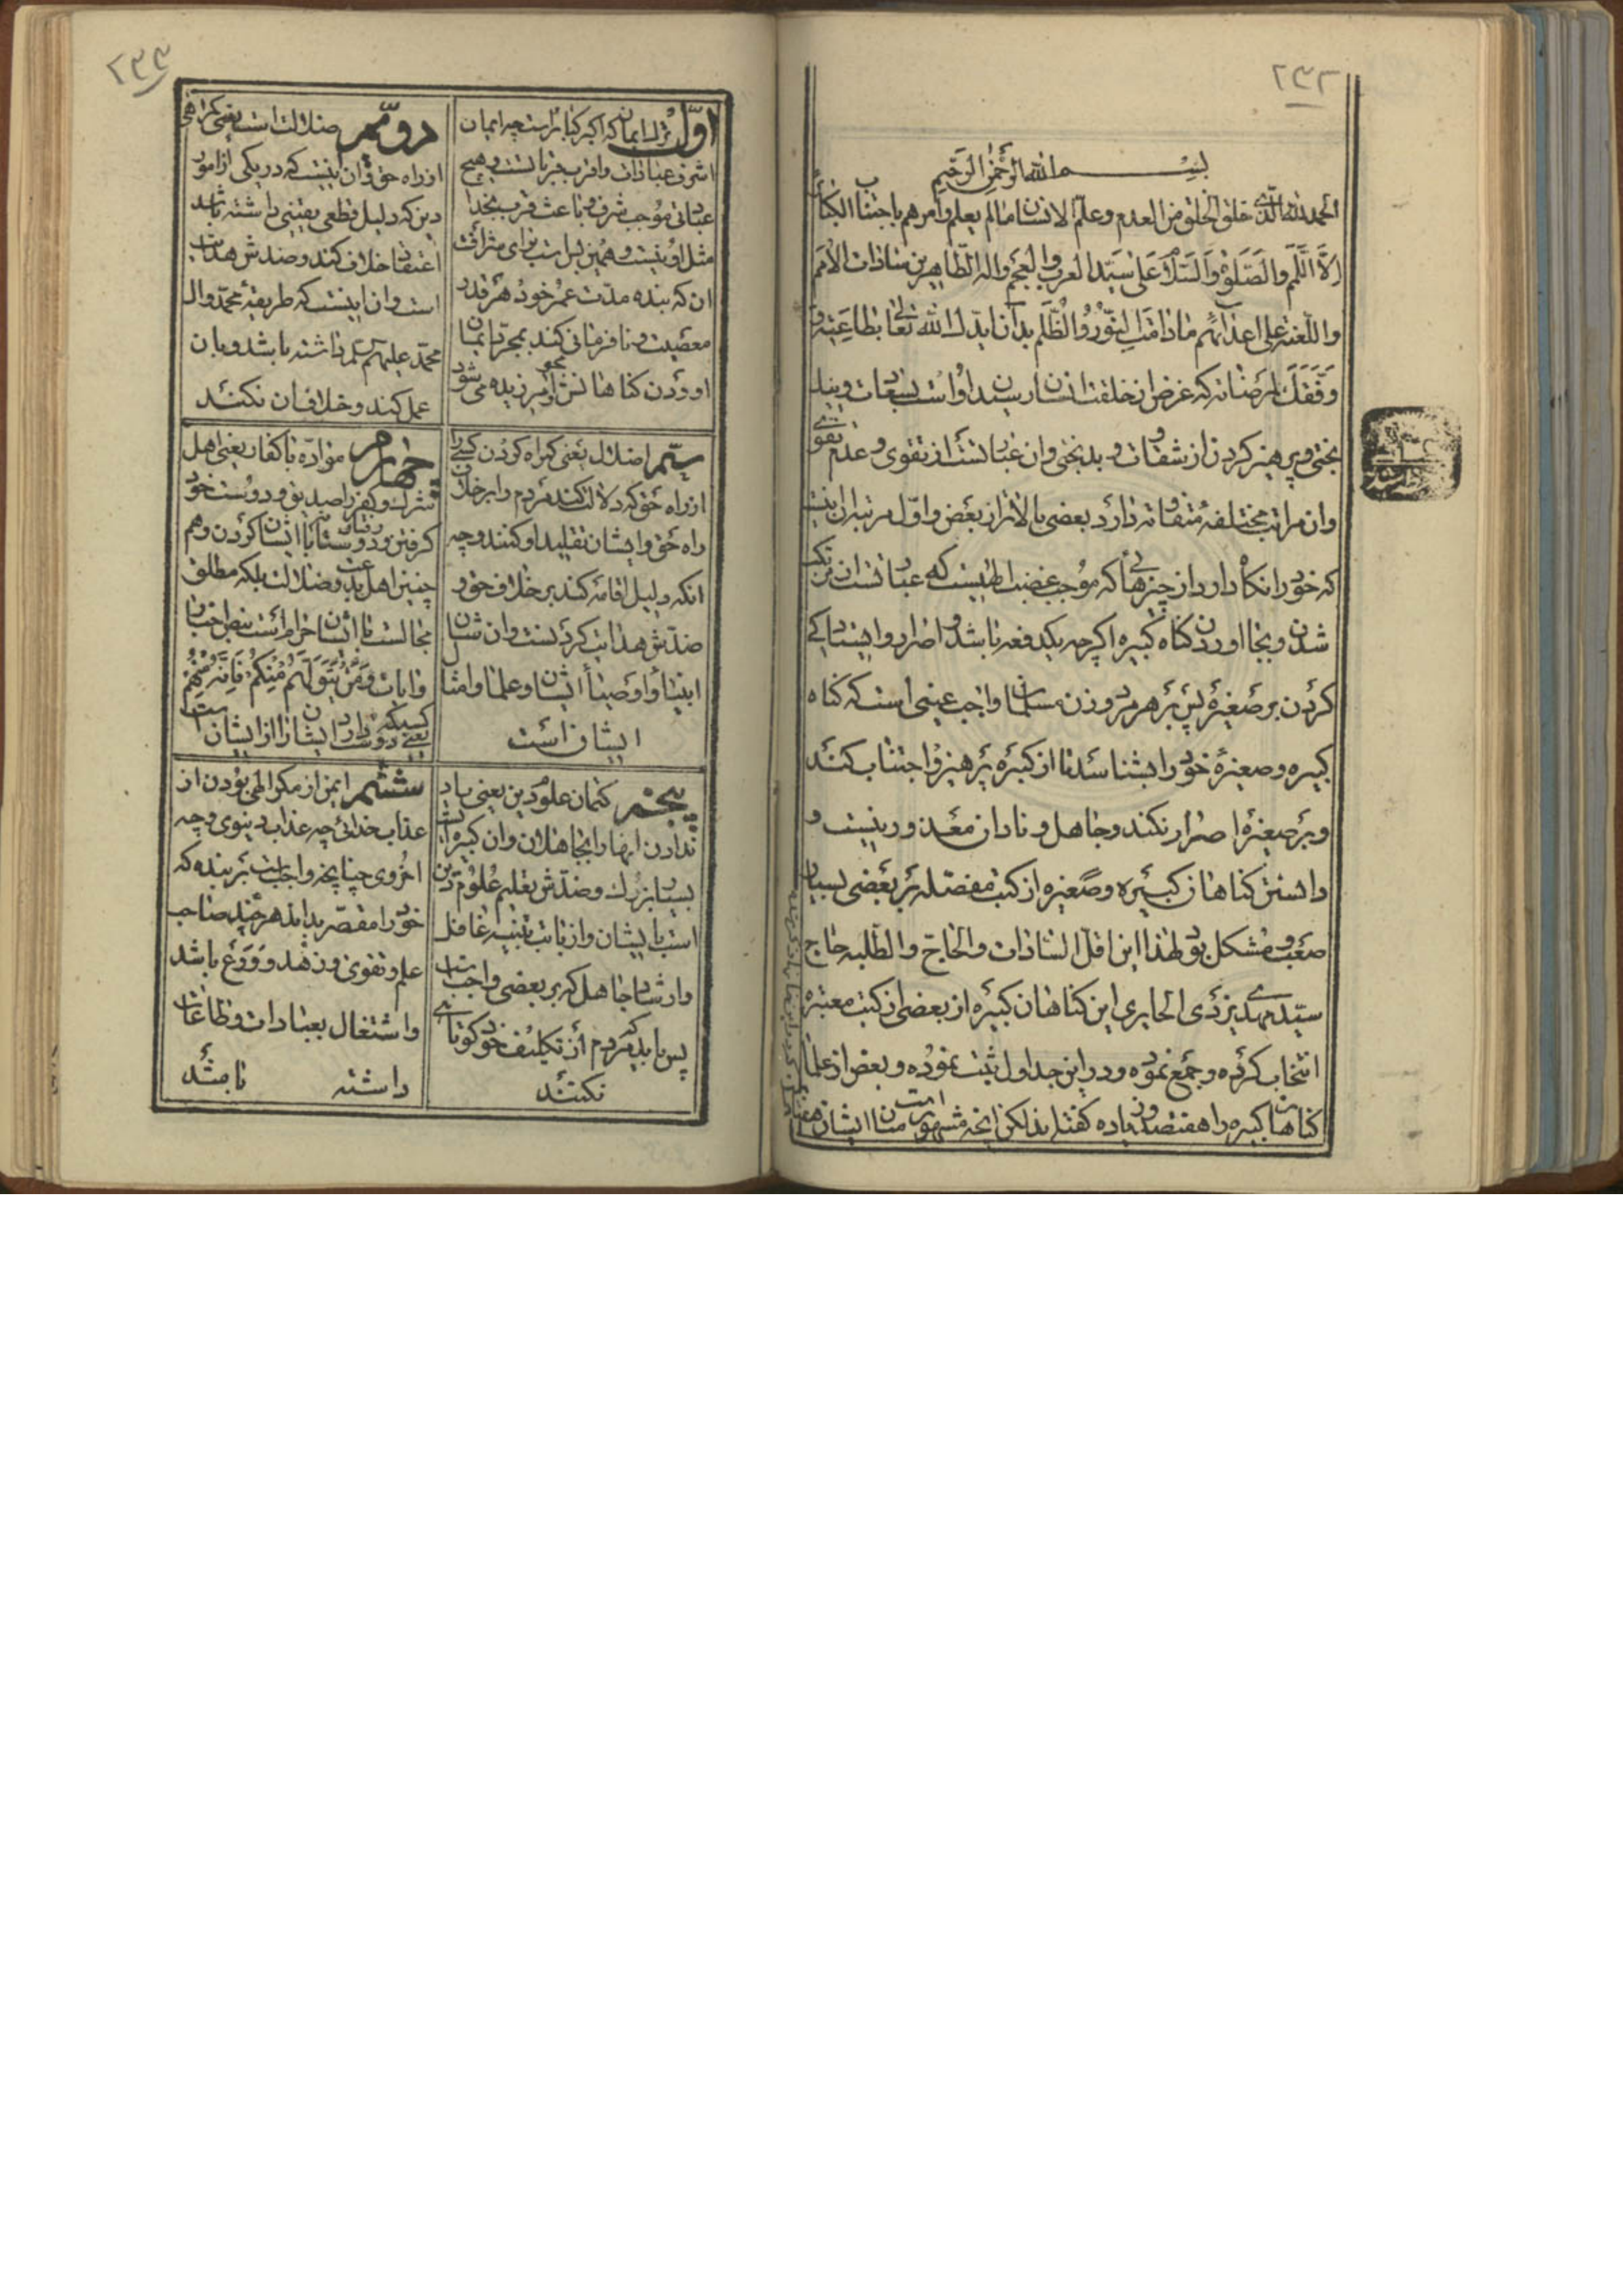 ۲۳۲
بسم الله الرحمن الرحیم
الحمد لله الذی خلق الخلق من العدم وعلم الانسان ما لم یعلم وامرهم باجتناب الکبائر
الا اللمم والصلوة والسلام علی سید العرب والعجم واله الطاهرین سادات الامم
واللعنة علی اعدائهم ما دامت النور والظلم بدان ایدک الله تعالی بطاعته و
وفقک لمرضاته که غرض از خلقت انسان رسیدن او است بسعادت و نیک
بختی و پرهیز کردن از شقاوت و بدبختی وان عبارتست از تقوی و عدم تقوی
وان مراتب مختلفه متفاوته دارد بعضی بالاتر از بعض واول مرتبه ان اینست
که خود را نگاه دارد از چیزهائی که موجب غضب الهیست که عبارتست از مرتکب
شدن و بجا اوردن گناه کبیره اگرچه یکدفعه باشد و اصرار و ایستادگی
کردن بر صغیره پس بر هر مرد و زن مسلمان واجب عینی است که گناه
کبیره و صغیره خود را بشناسد تا از کبیره پرهیز و اجتناب کند
و بر صغیره اصرار نکند و جاهل و نادان معذور نیست و
دانستن گناهان کبیره و صغیره از کتب مفصله بر بعضی بسیار
صعب و مشکل بود لهذا این اقل السادات والحاج والطلبه حاج
سید مهدی یزدی الحایری این گناهان کبیره از بعضی از کتب معتبره
انتخاب کرده و جمع نموده و در این جداول ثبت نموده و بعض از علما
گناهان کبیره را هفتصد و زیاده گفته‌اند لکن انچه مشهور است میان ایشان
۲۳۳
اول ترک ایمان که اکبر کبائر است چه ایمان
اشرف عبادات واقرب قرباتست و هیچ
عبادتی موجب شرف و باعث قرب بخدا
مثل او نیست و همین بس است برای شرافت
ان که بنده مدت عمر خود هر قدر
معصیت و نافرمانی کند بمجرد ایمان
اوردن گناهانش محو و امرزیده می شود
دویم ضلالت است یعنی گمراهی
از راه حق وان اینست که در یکی از امور
دین که دلیل قطعی یقینی داشته باشد
اعتقاد خلاف کند و ضدش هدایت
است وان اینست که طریقه محمد وال
محمد علیهم السلم داشته باشد و بان
عمل کند و خلاف ان نکند
سیم اضلال یعنی گمراه کردن کسی را
از راه حق که دلالت کند مردم را بر خلاف
راه حق و ایشان تقلید او کنند و چه
انکه دلیل اقامه کند بر خلاف حق و
ضدش هدایت کردنست وان شان
انبیا و اوصیا ایشان و علما و امثال
ایشان است
چهارم موادّه با کفار یعنی اهل
شرک و کفر را صدیق و دوست خود
گرفتن و رفتار دوستانه با ایشان کردن و هم
چنین اهل بدعت و ضلالت بلکه مطلق
مجالست با ایشان حرام است بنص اخبار
و ایات و من یتولهم منکم فانه منهم
یعنی کسیکه دوست دارد ایشان را از ایشان است
پنجم کتمان علوم دین یعنی یاد
ندادن انها را بجاهلان وان کبیره ایست
بسیار بزرگ و ضدش تعلیم علوم دین
است بایشان و از بابت تنبیه غافل
و ارشاد جاهل که بر بعضی واجب است
پس باید که مردم از تکلیف خود کوتاهی
نکنند
ششم ایمن از مکر الهی بودن از
عذاب خدائی چه عذاب دنیوی و چه
اخروی چنانچه واجب است بر بنده که
خود را مقصر بداند هر چند صاحب
علم و تقوی و زهد و ورع باشد
و اشتغال بعبادات و طاعات
داشته باشد